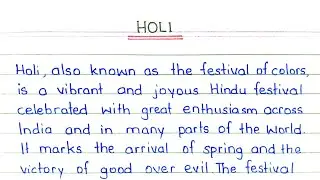 HOLI
Holi, also known as the festival of colors,
is a vibrant and joyous Hindu festival
celebrated with great enthusiasm across
India and in many parts of the world.
It marks the arrival of spring and the
victory of good over evil. The festival